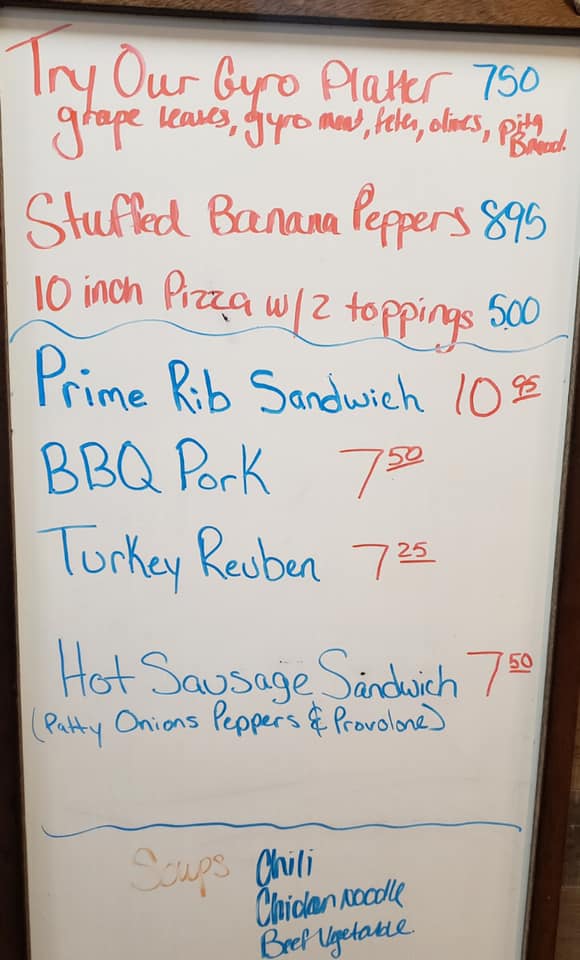 Try Our Gyro Platter 750
grape leaves, gyro meat, feta, olives, pita
Bread.
Stuffed Banana Peppers 895
10 inch Pizza w/2 toppings 500
Prime Rib Sandwich 10 95
BBQ Pork 7 50
Turkey Reuben 7 25
Hot Sausage Sandwich 7 50
(Patty Onions Peppers & Provolone)
Soups Chili
Chicken Noodle
Beef Vegetable